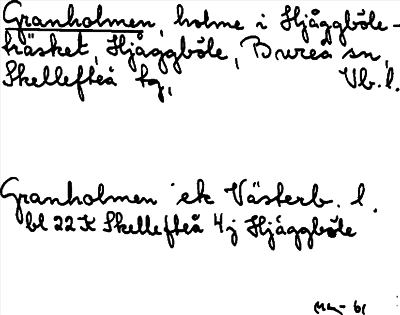 Granholmen, holme i Hjåggböle-
träsket, Hjåggböle, Bureå sn,
Skellefteå tg, Vb. l.
Granholmen ek Västerb. l.
bl 22 K Skellefteå 4 j Hjåggböle
61